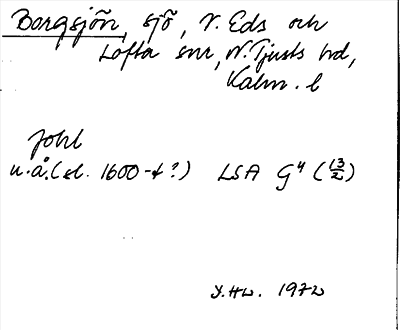 Borgsjön, sjö, V. Eds och
Lofta snr, N. Tjusts hd,
Kalm. l
Johl
u.å. (sl. 1600-t ?) LSA G⁴ (13/2)
1972